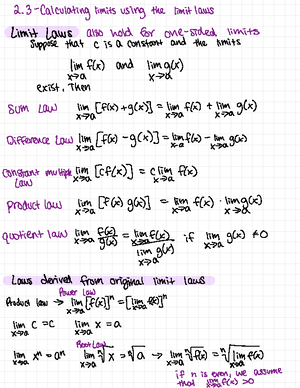 2.3-Calculating limits using the limit laws
Limit Laws also hold for one-sided limits
Suppose that c is a constant and the limits
lim x→a f(x) and lim x→a g(x)
exist. Then
Sum Law lim x→a [f(x)+g(x)] = lim x→a f(x) + lim x→a g(x)
Difference Law lim x→a [f(x)-g(x)] = lim x→a f(x) - lim x→a g(x)
Constant multiple Law lim x→a [cf(x)] = c lim x→a f(x)
Product law lim x→a [f(x) g(x)] = lim x→a f(x) · lim x→a g(x)
quotient law lim x→a f(x)/g(x) = lim x→a f(x) / lim x→a g(x) if lim x→a g(x) ≠0
Laws derived from original limit laws
Power Law
Product law → lim x→a [f(x)]^n = [lim x→a f(x)]^n
lim x→a c = c lim x→a x = a
Root Law
lim x→a x^n = a^n lim x→a ⁿ√x = ⁿ√a → lim x→a ⁿ√f(x) = ⁿ√lim x→a f(x)
if n is even, we assume
that lim x→a f(x) > 0